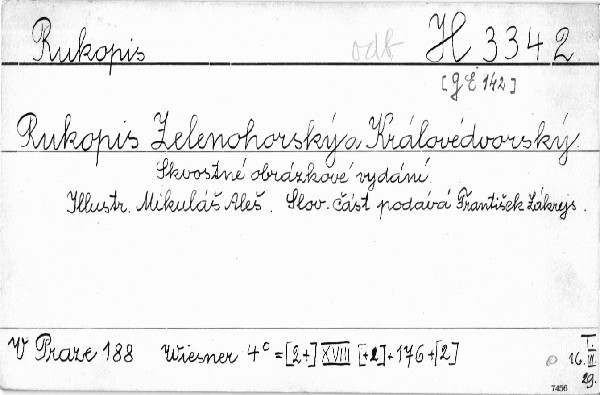 Rukopis odb H 3342
[gE 142]
Rukopis Zelenohorský a Královédvorský.
Skvostné obrázkové vydání.
Illustr. Mikuláš Aleš. Slov. část podává František Zákrejs.
V Praze 188 Wiesner 4° = [2+] XVIII [+2] + 176 + [2]
I.
16. III.
29.
7456